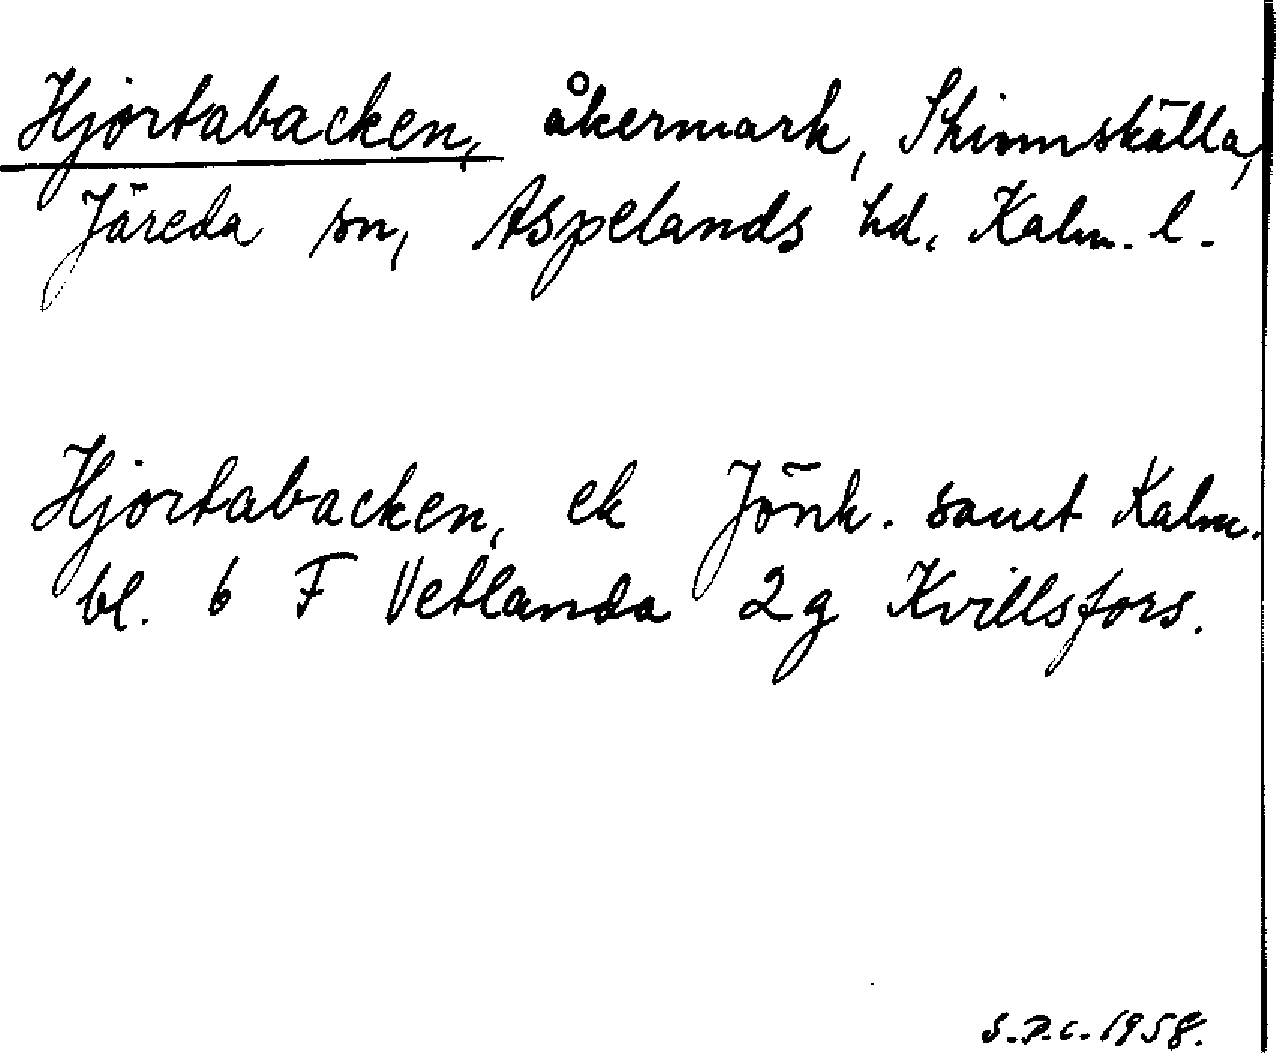 Hjortabacken, åkermark, Skinnskälla,
Järeda sn, Aspelands hd. Kalm. l.
Hjortabacken, ek Jönk. samt Kalm.
bl. 6 F Vetlanda 2g Kvillsfors.
S.P.C. 1958.